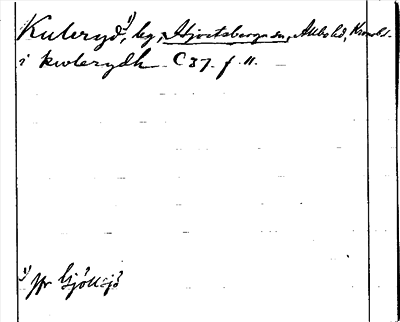 Kuleryd,¹⁾ by, Hjortsberga sn, Allbo hd, Kronob.l.
i kwlerydh C 37. f. 11.
¹⁾ jfr Gjöllsjö